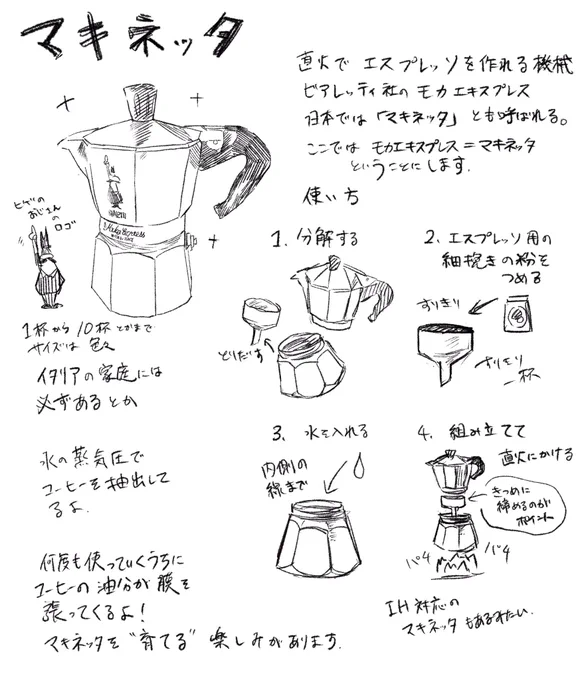 マキネッタ
直火で エスプレッソを作れる機械
ビアレッティ社の モカエキスプレス
日本では「マキネッタ」とも呼ばれる。
ここでは モカエキスプレス=マキネッタ
ということにします。
ヒゲの
おじさん
の
ロゴ
1杯から10杯とかまで
サイズは 色々
イタリアの家庭には
必ずあるとか
水の蒸気圧で
コーヒーを抽出して
るよ.
何度も使っていくうちに
コーヒーの油分が膜を
張ってくるよ!
マキネッタを“育てる”楽しみがあります.
使い方
1. 分解する
とりだす
2. エスプレッソ用の
細挽きの粉を
つめる
すりきり
すりきり
一杯
3. 水を入れる
内側の
線まで
4. 組み立てて
直火にかける
きつめに
締めるのが
ポイント
パチ
パチ
IH対応の
マキネッタもあるみたい.